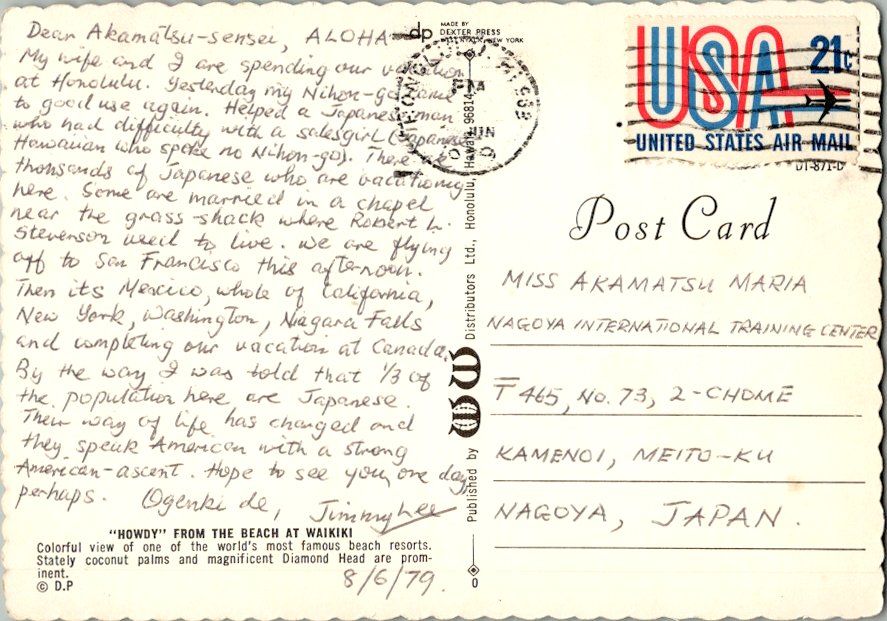 Dear Akamatsu-sensei, ALOHA
My wife and I are spending our vacation
at Honolulu. Yesterday my Nihon-go came
to good use again. Helped a Japanese man
who had difficulty with a salesgirl (Japanese
Hawaiian who spoke no Nihon-go). There are
thousands of Japanese who are vacationing
here. Some are married in a chapel
near the grass-shack where Robert L.
Stevenson used to live. We are flying
off to San Francisco this afternoon.
Then its Mexico, whole of California,
New York, Washington, Niagara Falls
and completing our vacation at Canada.
By the way I was told that 1/3 of
the population here are Japanese.
Their way of life has changed and
they speak American with a strong
American-ascent. Hope to see you one day
perhaps. Ogenki de, Jimmy Lee
"HOWDY" FROM THE BEACH AT WAIKIKI
Colorful view of one of the world's most famous beach resorts.
Stately coconut palms and magnificent Diamond Head are prom-
inent.
© D.P
8/6/79.
dp
MADE BY
DEXTER PRESS
NEW YORK
Published by WW Distributors Ltd., Honolulu, Hawaii 96814
0
JUN
USA 21c
UNITED STATES AIR MAIL
DT-871-D
Post Card
MISS AKAMATSU MARIA
NAGOYA INTERNATIONAL TRAINING CENTER
〒465, NO. 73, 2-CHOME
KAMENOI, MEITO-KU
NAGOYA, JAPAN.